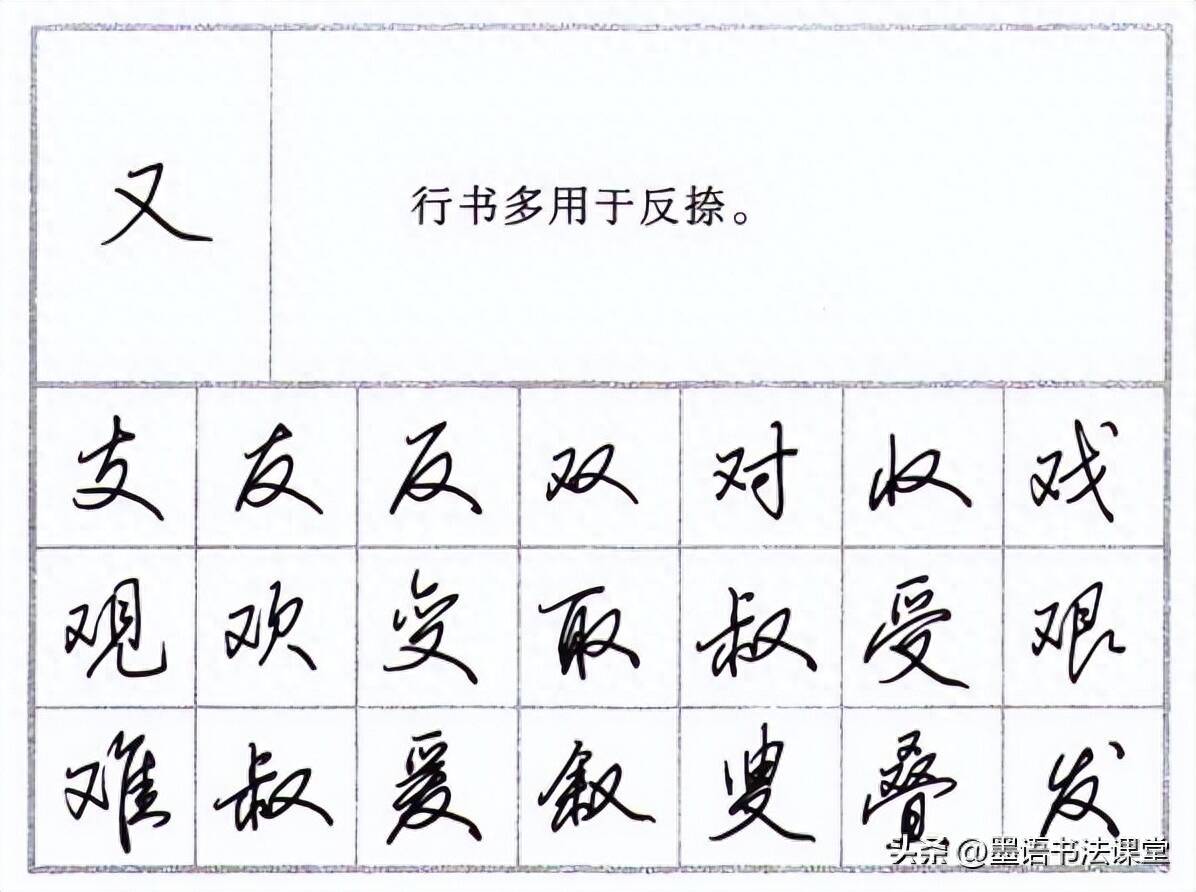 又
行书多用于反捺。
支 友 反 双 对 收 戏
观 欢 变 取 叔 受 艰
难 叔 爰 叙 叟 叠 发
头条 @墨语书法课堂